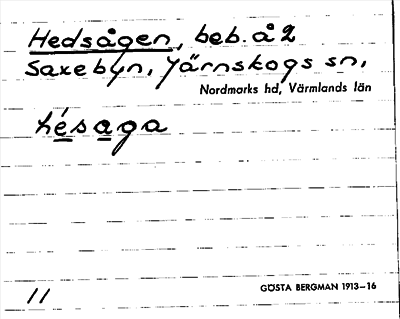 Hedsågen, beb. å 2
Saxebyn, Järnskogs sn,
Nordmarks hd, Värmlands län
hésaga
11
GÖSTA BERGMAN 1913–16